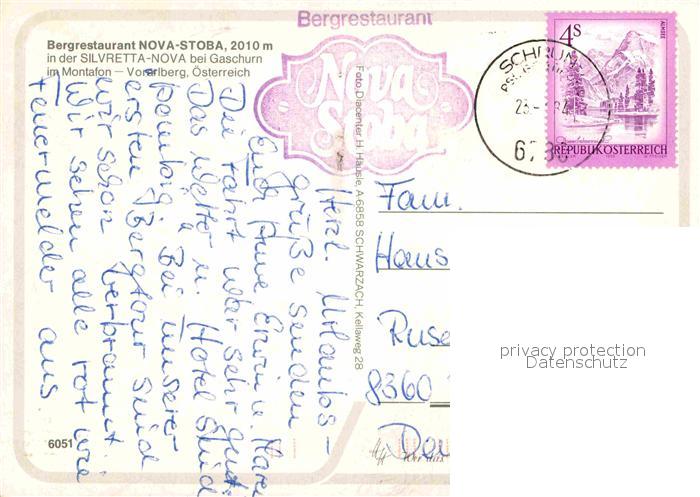 Bergrestaurant
Bergrestaurant NOVA-STOBA, 2010 m
in der SILVRETTA-NOVA bei Gaschurn
im Montafon — Vorarlberg, Österreich
Nova
Stoba
Foto Diacenter H. Häusle, A-6858 SCHWARZACH, Kellaweg 28
4S
ALMSEE
REPUBLIK ÖSTERREICH
SCHRUNS
23
84
6780
Herzl. Urlaubs-
grüße senden
Euch Anne Erwin u.
Die Fahrt war sehr gut.
Das Wetter u. Hotel sind
Bei unserer
ersten Bergtour sind
wir schon verbrannt.
Wir sehen alle rot wie
Feuermelder aus.
Fam.
Hans
Ruse
8360
6051
privacy protection
Datenschutz